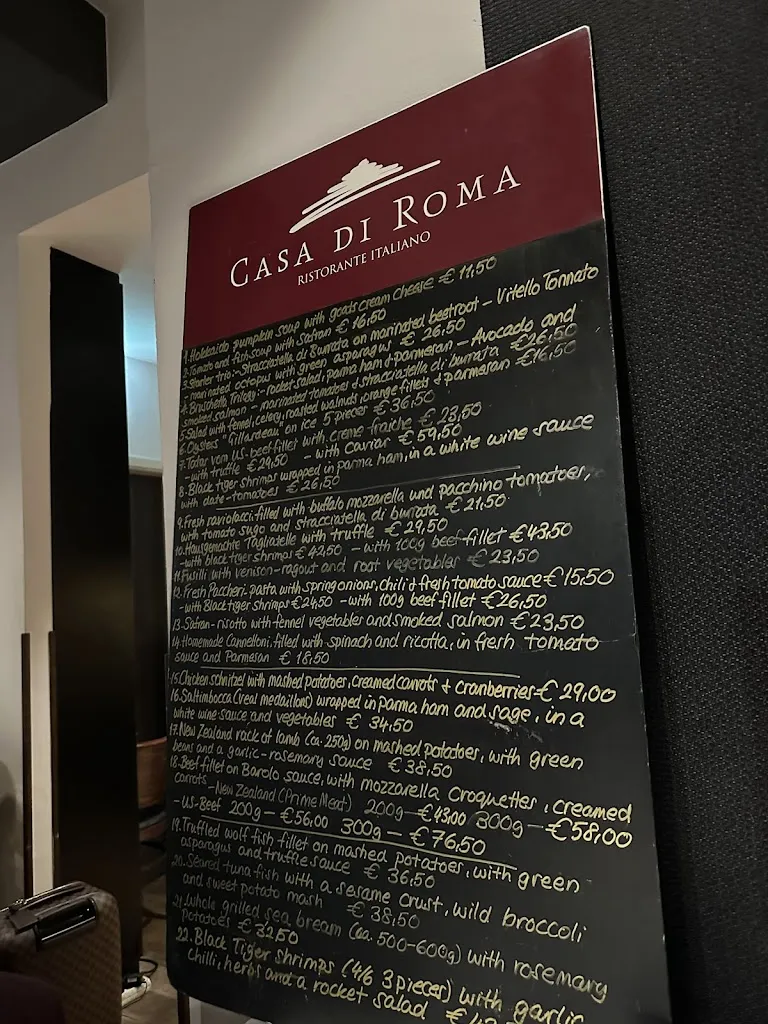 CASA DI ROMA
RISTORANTE ITALIANO
1. Hokkaido pumpkin soup with goats cream cheese € 11,50
2. Tomato and fish soup with Safran € 16,50
3. Starter trio:- Stracciatella di Burrata on marinated beetroot - Vitello Tonnato
- marinated octopus with green asparagus € 26.50
4. Bruschetta Trilogy:- rocket salad, parma ham & parmesan - Avocado and
smoked salmon - marinated tomatoes & stracciatella di burrata €26,50
5. Salad with fennel, celery, roasted walnuts, orange fillets & parmesan €16,50
6. Oysters "Gillardeau" on ice 5 pieces € 36,50
7. Tatar vom US-beef fillet with creme fraiche € 23,50
- with truffle € 29,50 - with Caviar € 59,50
8. Black tiger shrimps wrapped in parma ham, in a white wine sauce
with date-tomatoes € 26,50
9. Fresh raviolacci filled with buffalo mozzarella und pacchino tomatoes,
with tomato sugo and stracciatella di burrata € 21,50
10. Hausgemachte Tagliatelle with truffle € 29,50
- with black tiger shrimps € 42,50 - with 100g beef fillet €43,50
11. Fusilli with venison-ragout and root vegetables € 23,50
12. Fresh Paccheri-pasta with spring onions, chili & fresh tomato sauce €15,50
- with Black tiger shrimps €24,50 - with 100g beef fillet €26,50
13. Safran-risotto with fennel vegetables and smoked salmon € 23,50
14. Homemade Cannelloni, filled with spinach and ricotta, in fresh tomato
sauce and Parmesan € 18,50
15. Chicken schnitzel with mashed potatoes, creamed carrots & cranberries € 29,00
16. Saltimbocca (veal medaillons) wrapped in Parma ham and sage, in a
white wine sauce and vegetables € 34,50
17. New Zealand rack of lamb (ca. 250g) on mashed potatoes, with green
beans and a garlic-rosemary sauce € 38,50
18. Beef fillet on Barolo sauce, with mozzarella croquettes, creamed
carrots - New Zealand (Prime Meat) 200g - €43,00 300g - €58,00
- US-Beef 200g - €56,00 300g - € 76,50
19. Truffled wolf fish fillet on mashed potatoes, with green
asparagus and truffle sauce € 36,50
20. Seared tuna fish with a sesame crust, wild broccoli
and sweet potato mash € 38,50
21. Whole grilled sea bream (ca. 500-600g) with rosemary
Potatoes € 32,50
22. Black Tiger shrimps (4/6 3 pieces) with garlic
chilli, herbs and a rocket salad €